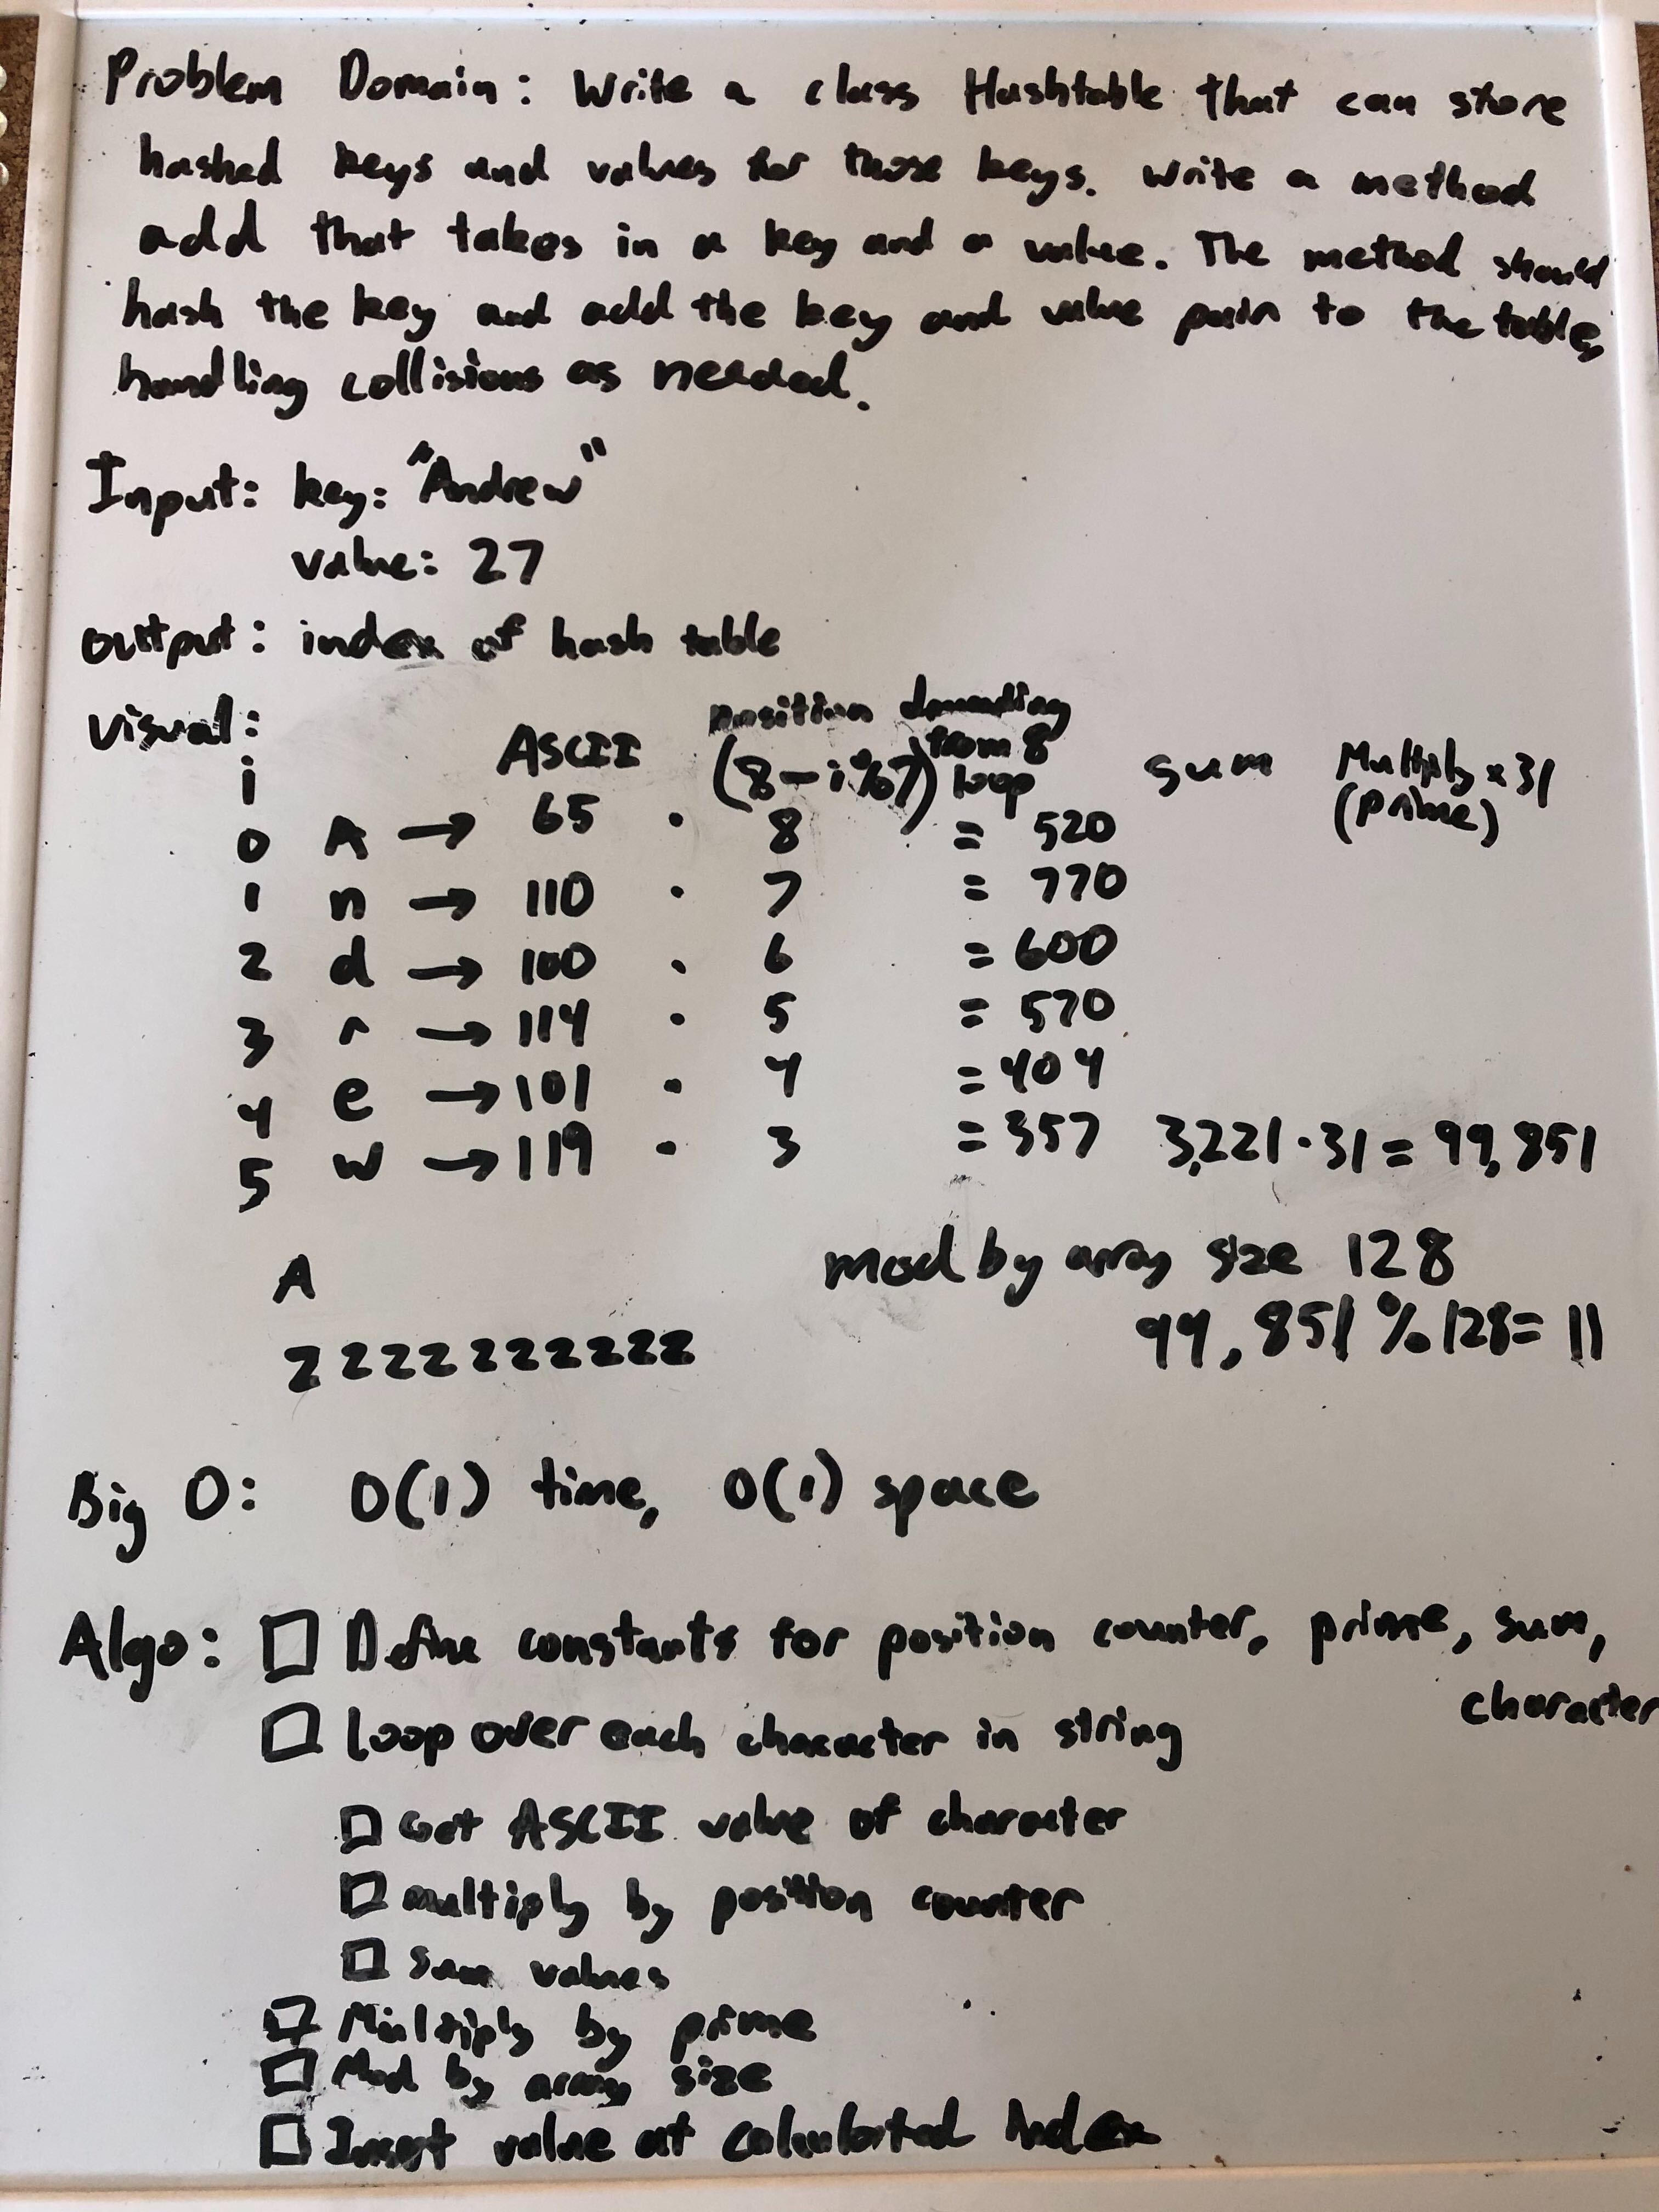 Problem Domain: Write a class Hashtable that can store
hashed keys and values for those keys. Write a method
add that takes in a key and a value. The method should
hash the key and add the key and value pair to the table,
handling collisions as needed.
Input: key: "Andrew"
value: 27
output: index of hash table
Visual:
position descending
from 8
loop
i ASCII (8-i%7) sum Multiply x 31
(prime)
0 A → 65 · 8 = 520
1 n → 110 · 7 = 770
2 d → 100 · 6 = 600
3 r → 114 · 5 = 570
4 e → 101 · 4 = 404
5 w → 119 · 3 = 357 3,221 · 31 = 99,851
A mod by array size 128
99,851 % 128 = 11
zzzzzzzzzz
Big O: O(1) time, O(1) space
Algo: Define constants for position counter, prime, sum,
character
loop over each character in string
Get ASCII value of character
multiply by position counter
Sum values
Multiply by prime
Mod by array size
Insert value at calculated index